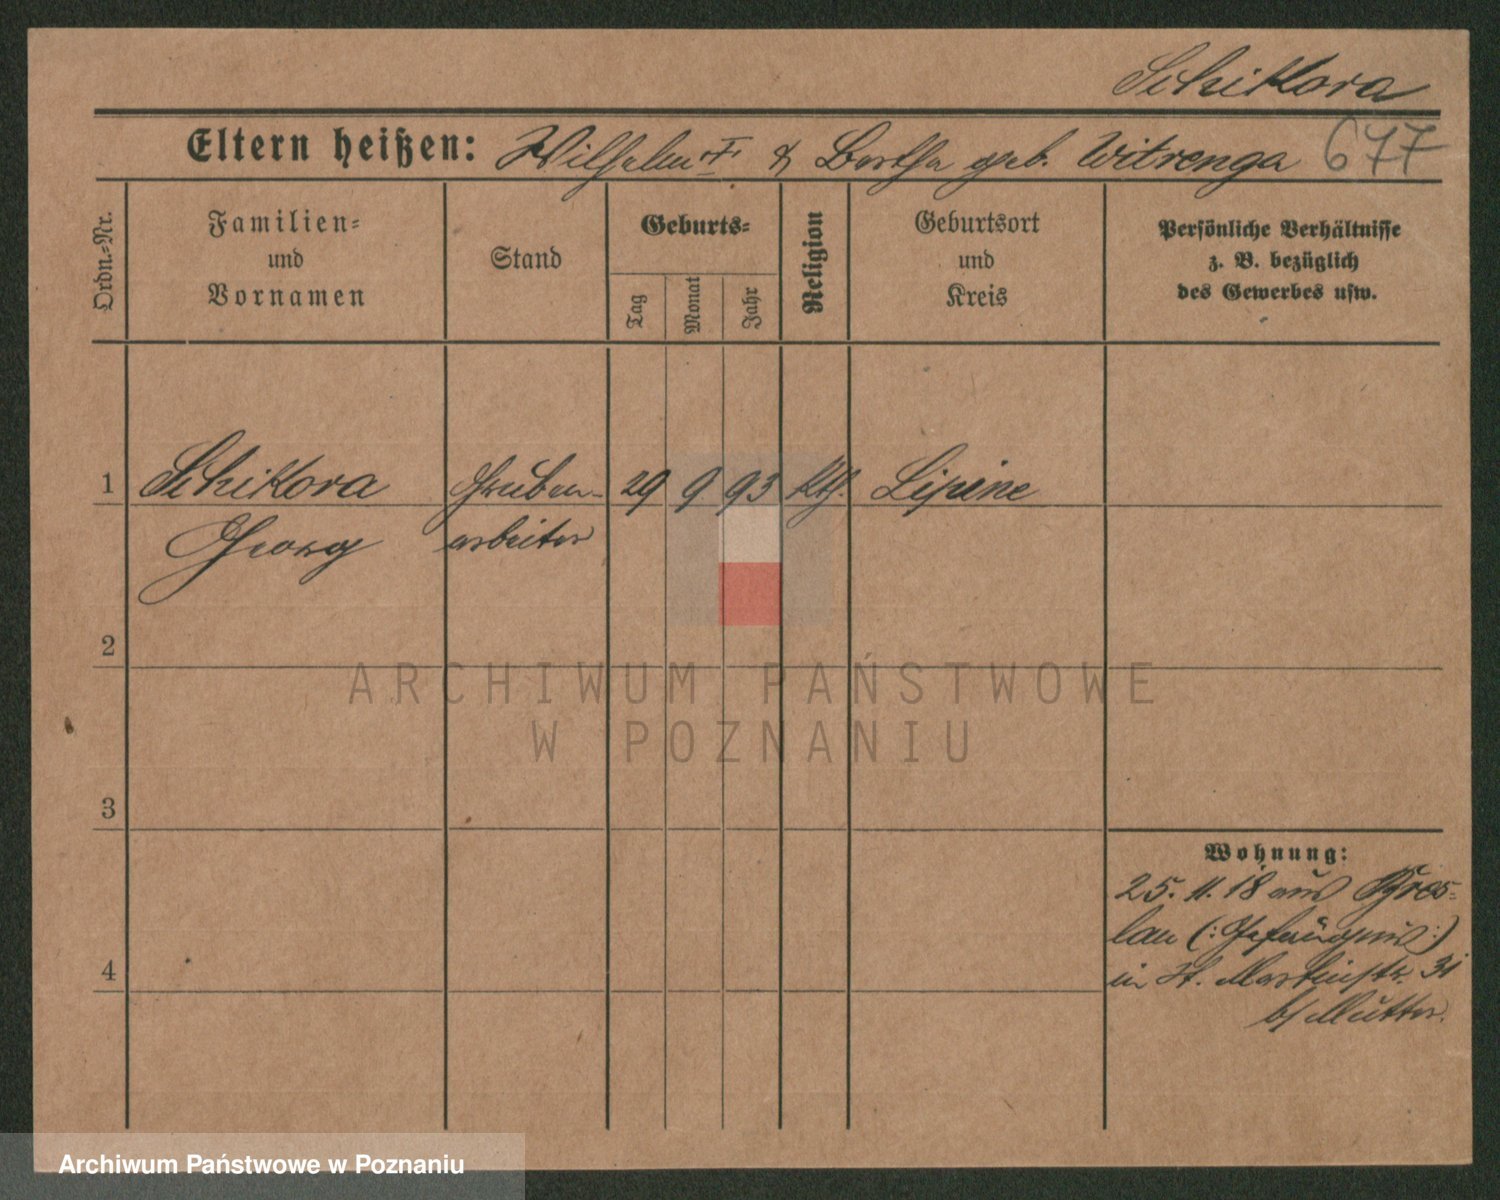 Schikora
Eltern heißen: Wilhelm † & Bertha geb. Witrenga 677
Ordn.-Nr.
Familien-
und
Vornamen
Stand
Geburts-
Tag
Monat
Jahr
Religion
Geburtsort
und
Kreis
Persönliche Verhältnisse
z. B. bezüglich
des Gewerbes usw.
1 Schikora Gruben- 29 9 93 kth. Lipine
Georg arbeiter
2
3
4
Wohnung:
25. 11. 18 aus Bres-
lau (: Gefängnis :)
in St. Martinstr. 31
b/ Mutter.
ARCHIWUM PAŃSTWOWE
W POZNANIU
Archiwum Państwowe w Poznaniu